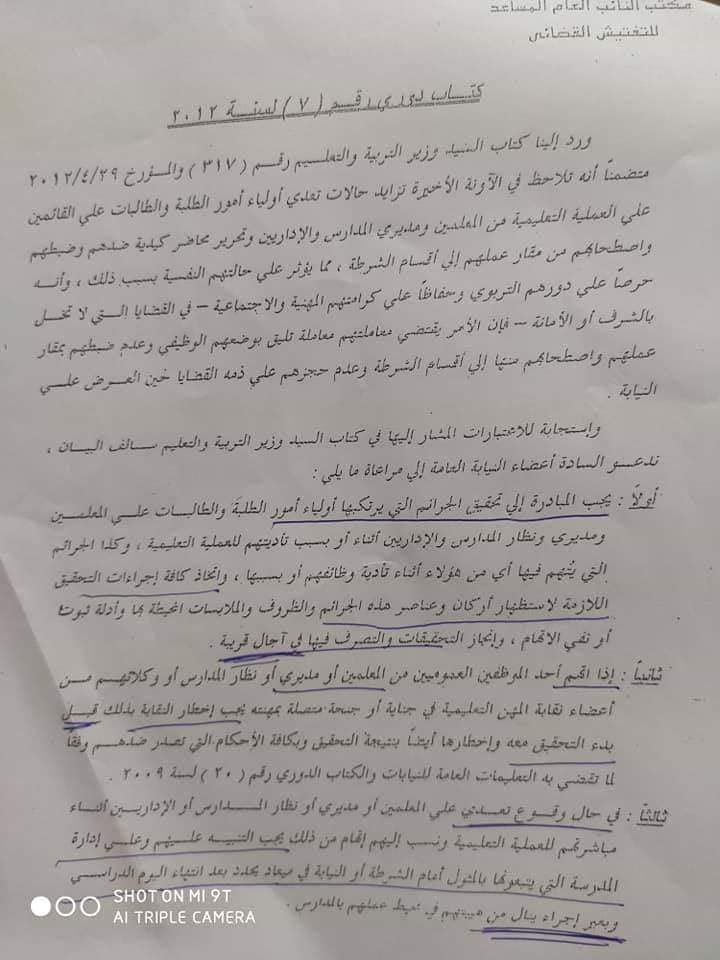 مكتب النائب العام المساعد
للتفتيش القضائى
كتاب دورى رقم ( ٧ ) لسنة ٢٠١٢
ورد إلينا كتاب السيد وزير التربية والتعليم رقم ( ٣١٧ ) والمؤرخ ٢٠١٢/٤/٢٩
متضمناً أنه تلاحظ في الآونة الأخيرة تزايد حالات تعدي أولياء أمور الطلبة والطالبات علي القائمين
علي العملية التعليمية من المعلمين ومديري المدارس والإداريين وتحرير محاضر كيدية ضدهم وضبطهم
واصطحابهم من مقار عملهم إلي أقسام الشرطة ، مما يؤثر علي حالتهم النفسية بسبب ذلك ، وأنه
حرصاً علي دورهم التربوي وحفاظاً علي كرامتهم المهنية والاجتماعية – في القضايا التي لا تخل
بالشرف أو الأمانة – فإن الأمر يقتضي معاملتهم معاملة تليق بوضعهم الوظيفي وعدم ضبطهم بمقار
عملهم واصطحابهم منها إلي أقسام الشرطة وعدم حجزهم علي ذمه القضايا حين العرض علي
النيابة .
وإستجابة للاعتبارات المشار إليها في كتاب السيد وزير التربية والتعليم سالف البيان ،
ندعو السادة أعضاء النيابة العامة إلي مراعاة ما يلي :
أولاً : يجب المبادرة إلي تحقيق الجرائم التي يرتكبها أولياء أمور الطلبة والطالبات علي المعلمين
ومديري ونظار المدارس والإداريين أثناء أو بسبب تأديتهم للعملية التعليمية ، وكذا الجرائم
التي يُتهم فيها أي من هؤلاء أثناء تأدية وظائفهم أو بسببها ، واتخاذ كافة إجراءات التحقيق
اللازمة لاستظهار أركان وعناصر هذه الجرائم والظروف والملابسات المحيطة بها وأدلة ثبوت
أو نفي الاتهام ، وإنجاز التحقيقات والتصرف فيها في آجال قريبة .
ثانياً : إذا اتهم أحد الموظفين العموميين من المعلمين أو مديري أو نظار المدارس أو وكلائهم من
أعضاء نقابة المهن التعليمية في جناية أو جنحة متصلة بمهنته يجب إخطار النقابة بذلك قبل
بدء التحقيق معه وإخطارها أيضاً بنتيجة التحقيق وبكافة الأحكام التي تصدر ضدهم وفقاً
لما تقضي به التعليمات العامة للنيابات والكتاب الدوري رقم ( ٢٠ ) لسنة ٢٠٠٩ .
ثالثاً : في حال وقوع تعدي علي المعلمين أو مديري أو نظار المدارس أو الإداريين أثناء
مباشرتهم للعملية التعليمية ونسب إليهم إتهام من ذلك يجب التنبيه عليهم وعلي إدارة
المدرسة التي يتبعونها بالمثول أمام الشرطة أو النيابة في ميعاد يحدد بعد انتهاء اليوم الدراسي
وبغير إجراء ينال من هيبتهم في محيط عملهم بالمدارس .
SHOT ON MI 9T
AI TRIPLE CAMERA